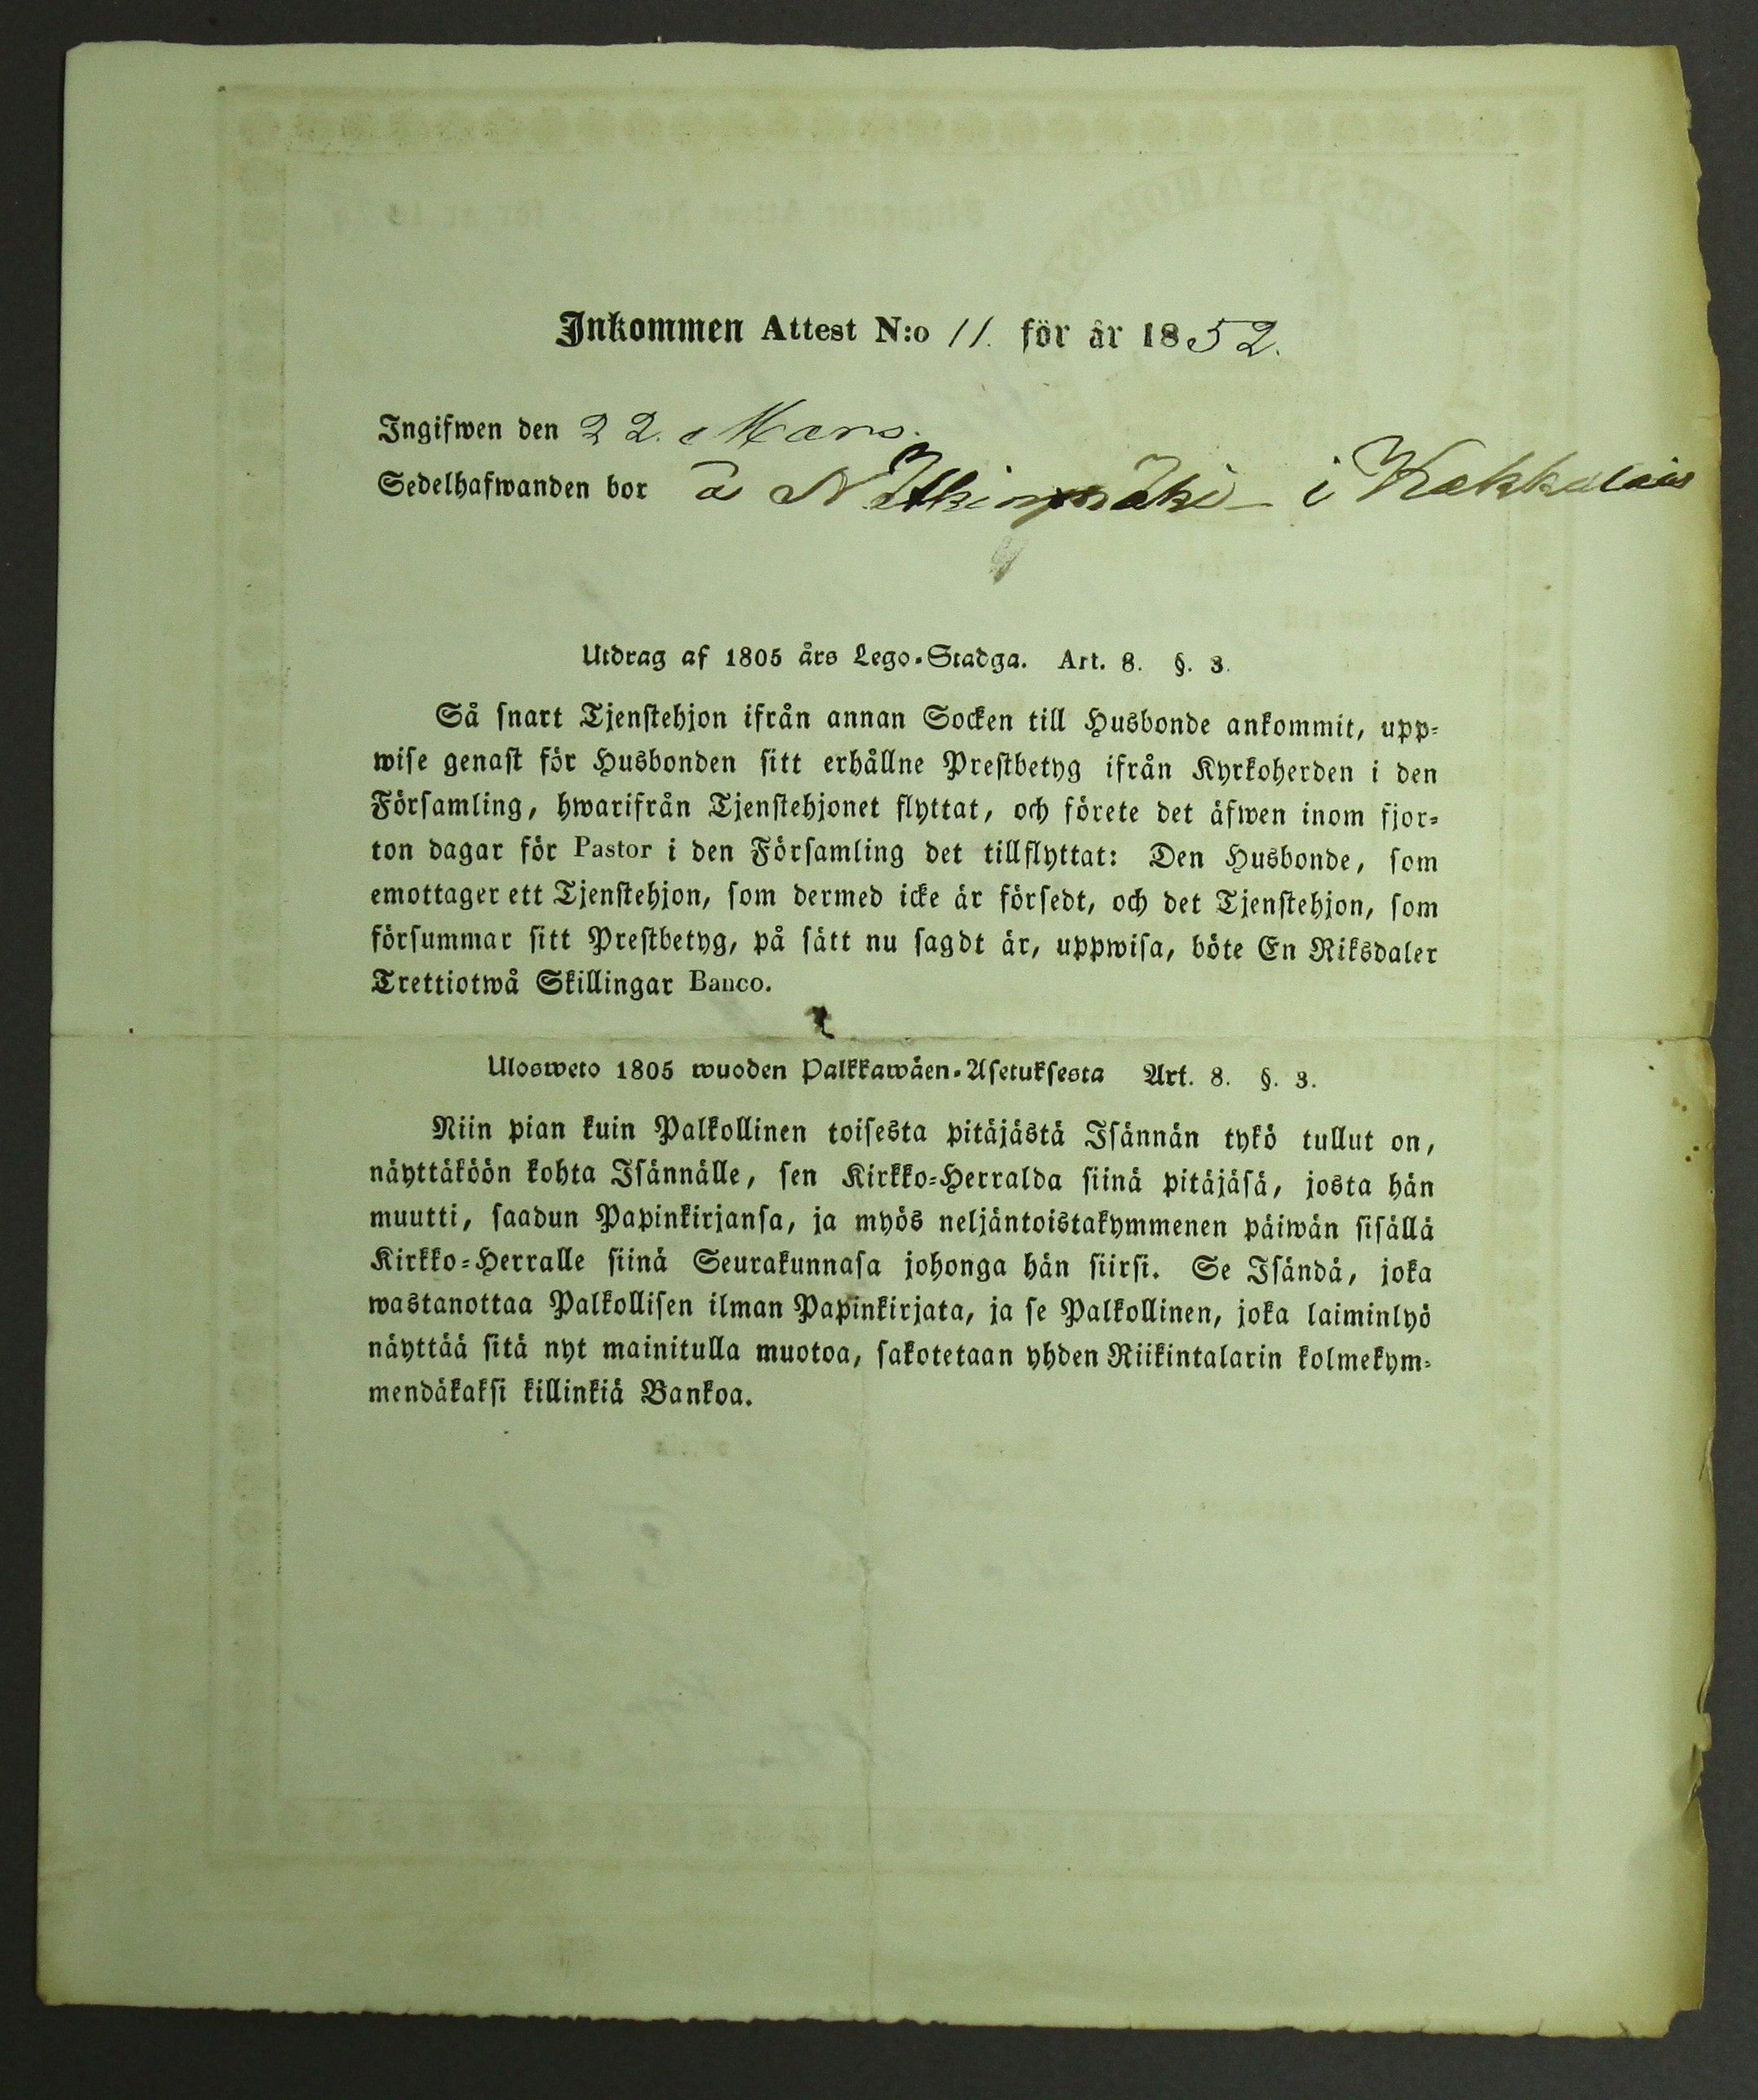 Inkommen Attest N:o 11. för år 1852.
Ingifwen den 22. Mars.
Sedelhafwanden bor å i
Utdrag af 1805 års Lego-Stadga. Art. 8. §. 3.
Så snart Tjenstehjon ifrån annan Socken till Husbonde ankommit, upp-
wise genast för Husbonden sitt erhållne Prestbetyg ifrån Kyrkoherden i den
Församling, hwarifrån Tjenstehjonet flyttat, och förete det äfwen inom fjor-
ton dagar för Pastor i den Församling det tillflyttat: Den Husbonde, som
emottager ett Tjenstehjon, som dermed icke är försedt, och det Tjenstehjon, som
försummar sitt Prestbetyg, på sätt nu sagdt är, uppwisa, böte En Riksdaler
Trettiotwå Skillingar Banco.
Ulosweto 1805 wuoden Palkkawäen-Asetuksesta Art. 8. §. 3.
Niin pian kuin Palkollinen toisesta pitäjästä Isännän tykö tullut on,
näyttäköön kohta Isännälle, sen Kirkko-Herralda siinä pitäjäsä, josta hän
muutti, saadun Papinkirjansa, ja myös neljäntoistakymmenen päiwän sisällä
Kirkko-Herralle siinä Seurakunnasa johonga hän siirsi. Se Isändä, joka
wastanottaa Palkollisen ilman Papinkirjata, ja se Palkollinen, joka laiminlyö
näyttää sitä nyt mainitulla muotoa, sakotetaan yhden Riikintalarin kolmekym-
mendäkaksi killinkiä Bankoa.